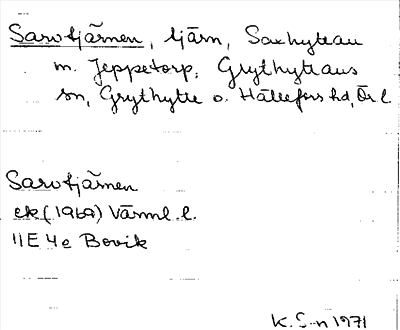 Sarvtjärnen, tjärn, Saxhyttan
m. Jeppetorp, Grythyttans
sn, Grythytte o. Hällefors hd, Ör l.
Sarvtjärnen
ek (1969) Värml. l.
11E 4e Bovik
K. S-n 1971